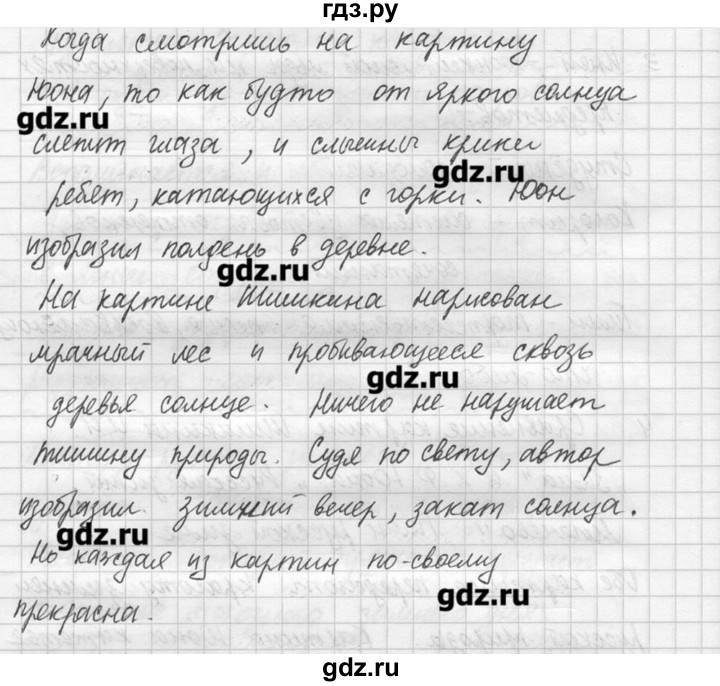 гдз.ру
Когда смотришь на картину
Юона, то как будто от яркого солнца
gdz.ru
слепит глаза, и слышны крики
gdz.ru
ребят, катающихся с горки. Юон
изобразил полдень в деревне.
gdz.ru
На картине Шишкина нарисован
мрачный лес и пробивающееся сквозь
gdz.ru
деревья солнце. Ничего не нарушает
тишину природы. Судя по свету, автор
изобразил зимний вечер, закат солнца.
gdz.ru
Но каждая из картин по-своему
gdz.ru
прекрасна.
gdz.ru